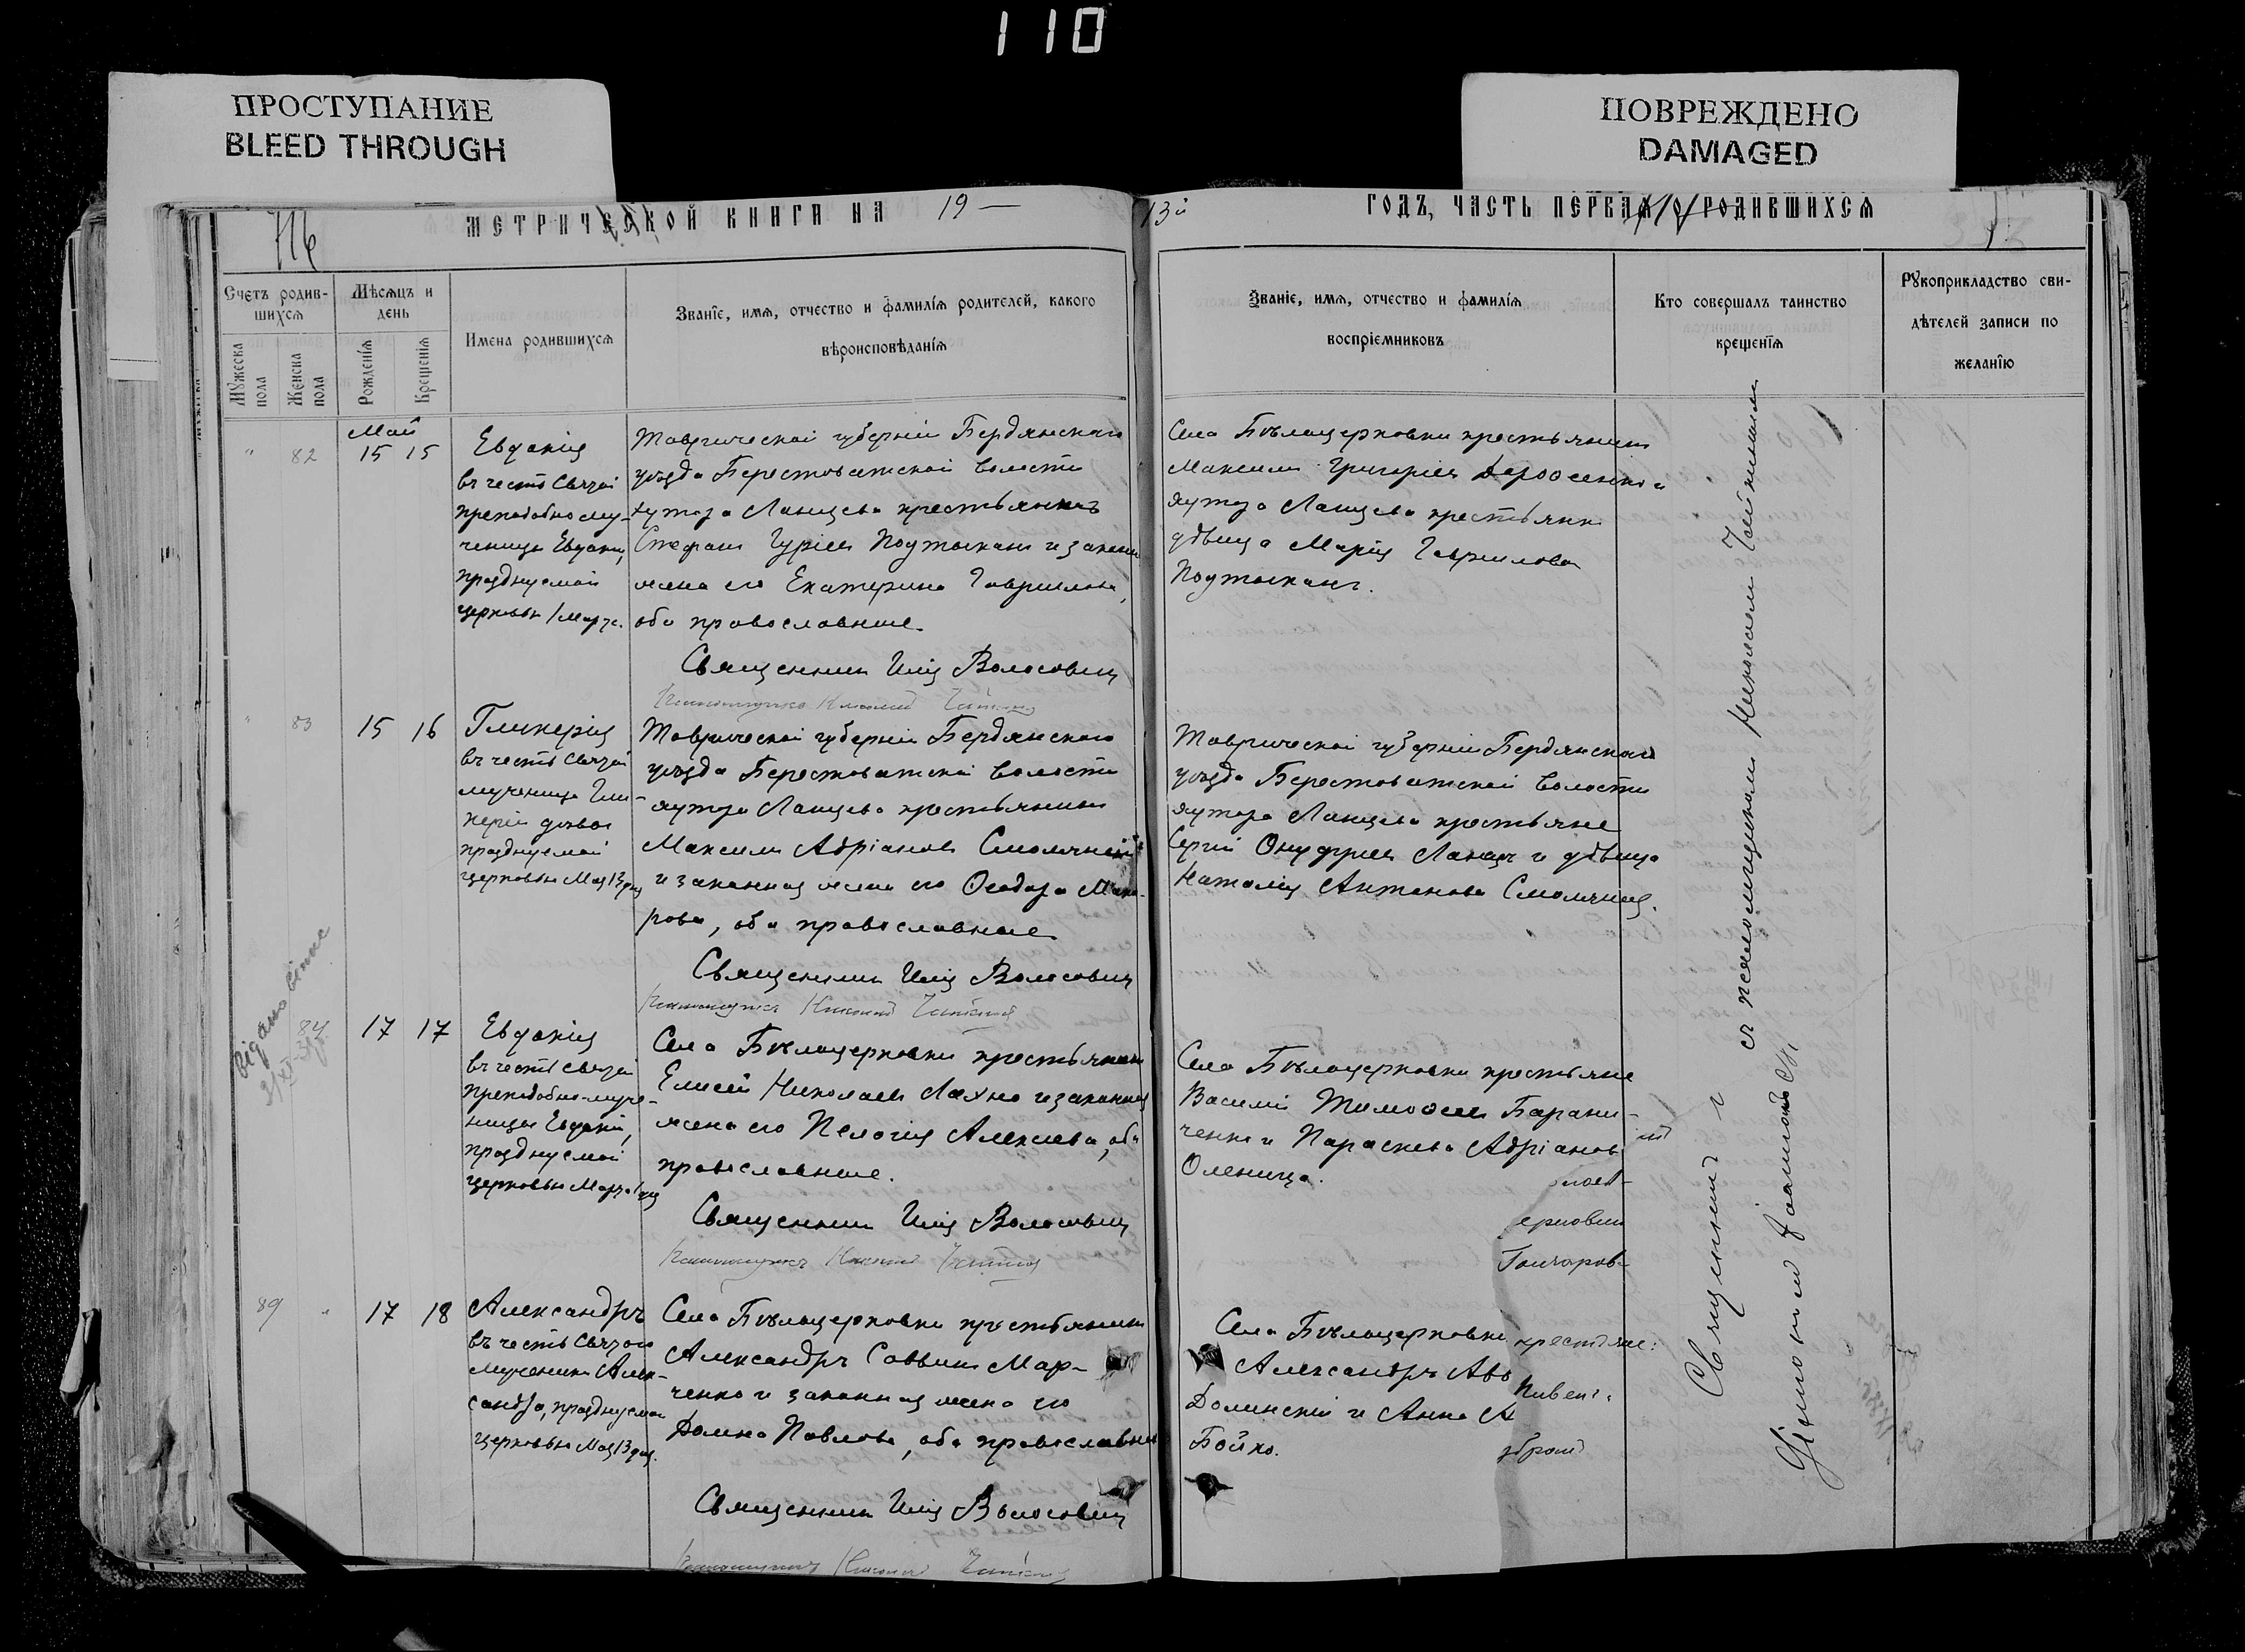 110
ПРОСТУПАНИЕ
BLEED THROUGH
ПОВРЕЖДЕНО
DAMAGED
МЕТРИЧЕСКОЙ КНИГИ НА 19 —
13й ГОДЪ, ЧАСТЬ ПЕРВАЯ, О РОДИВШИХСЯ
Счетъ родив-
шихся
Мужеска пола
Женска пола
Мѣсяцъ и
день
Рожденія
Крещенія
Имена родившихся
Званіе, имя, отчество и фамилія родителей, какого
вѣроисповѣданія
Званіе, имя, отчество и фамилія
воспріемниковъ
Кто совершалъ таинство
крещенія
Рукоприкладство сви-
дѣтелей записи по
желанію
Май
" 82 15 15
Евдокія
въ честь Святой
преподобно му-
ченицы Евдокіи,
празднуемой
церковью 1 Марта.
Таврической губерніи Бердянского
уѣзда Берестоватской волости
хутора Ланцева крестьянинъ
Стефанъ Гуріевъ Подтыканъ и законная
жена его Екатерина Гавриилова,
оба православные.
Священникъ Илія Волосовичъ
Села Бѣлоцерковки крестьянинъ
Максимъ Григоріевъ Дороѳенко и
хутора Ланцева крестьянка
дѣвица Марія Гавриилова
Подтыканъ.
" 83 15 16
Гликерія
въ честь Святой
мученицы Гли-
керіи дѣвы
празднуемой
церковью Мая 13 дня
Таврической губерніи Бердянского
уѣзда Берестоватской волости
хутора Ланцева крестьянинъ
Максимъ Адріановъ Смолячный
и законная жена его Ѳеодора Мака-
рова, оба православные
Священникъ Илія Волосовичъ
Таврической губерніи Бердянского
уѣзда Берестоватской волости
хутора Ланцева крестьяне
Сергій Онуфріевъ Ланцъ и дѣвица
Наталія Антонова Смолячная.
84 17 17
Евдокія
въ честь Святой
преподобно-муче-
ницы Евдокіи,
празднуемой
церковью Марта 1 дня
Села Бѣлоцерковки крестьянинъ
Елисей Николаевъ Лахно и законная
жена его Пелагія Алексіева, оба
православные.
Священникъ Илія Волосовичъ
Села Бѣлоцерковки крестьяне
Василій Тимоѳеевъ Барани-
ченко и Параскева Адріанова
Оленица.
Гончаров-
89 " 17 18
Александръ
въ честь Святого
мученика Алек-
сандра, празднуемаго
церковью Мая 13 дня.
Села Бѣлоцерковки крестьянинъ
Александръ Саввинъ Мар-
ченко и законная жена его
Домна Павлова, оба православные
Священникъ Илія Волосовичъ
Села Бѣлоцерковки крестьяне:
Александръ Аво
Долинскій и Анна А
Бойко.
Священникъ
съ псаломщикомъ Николаемъ